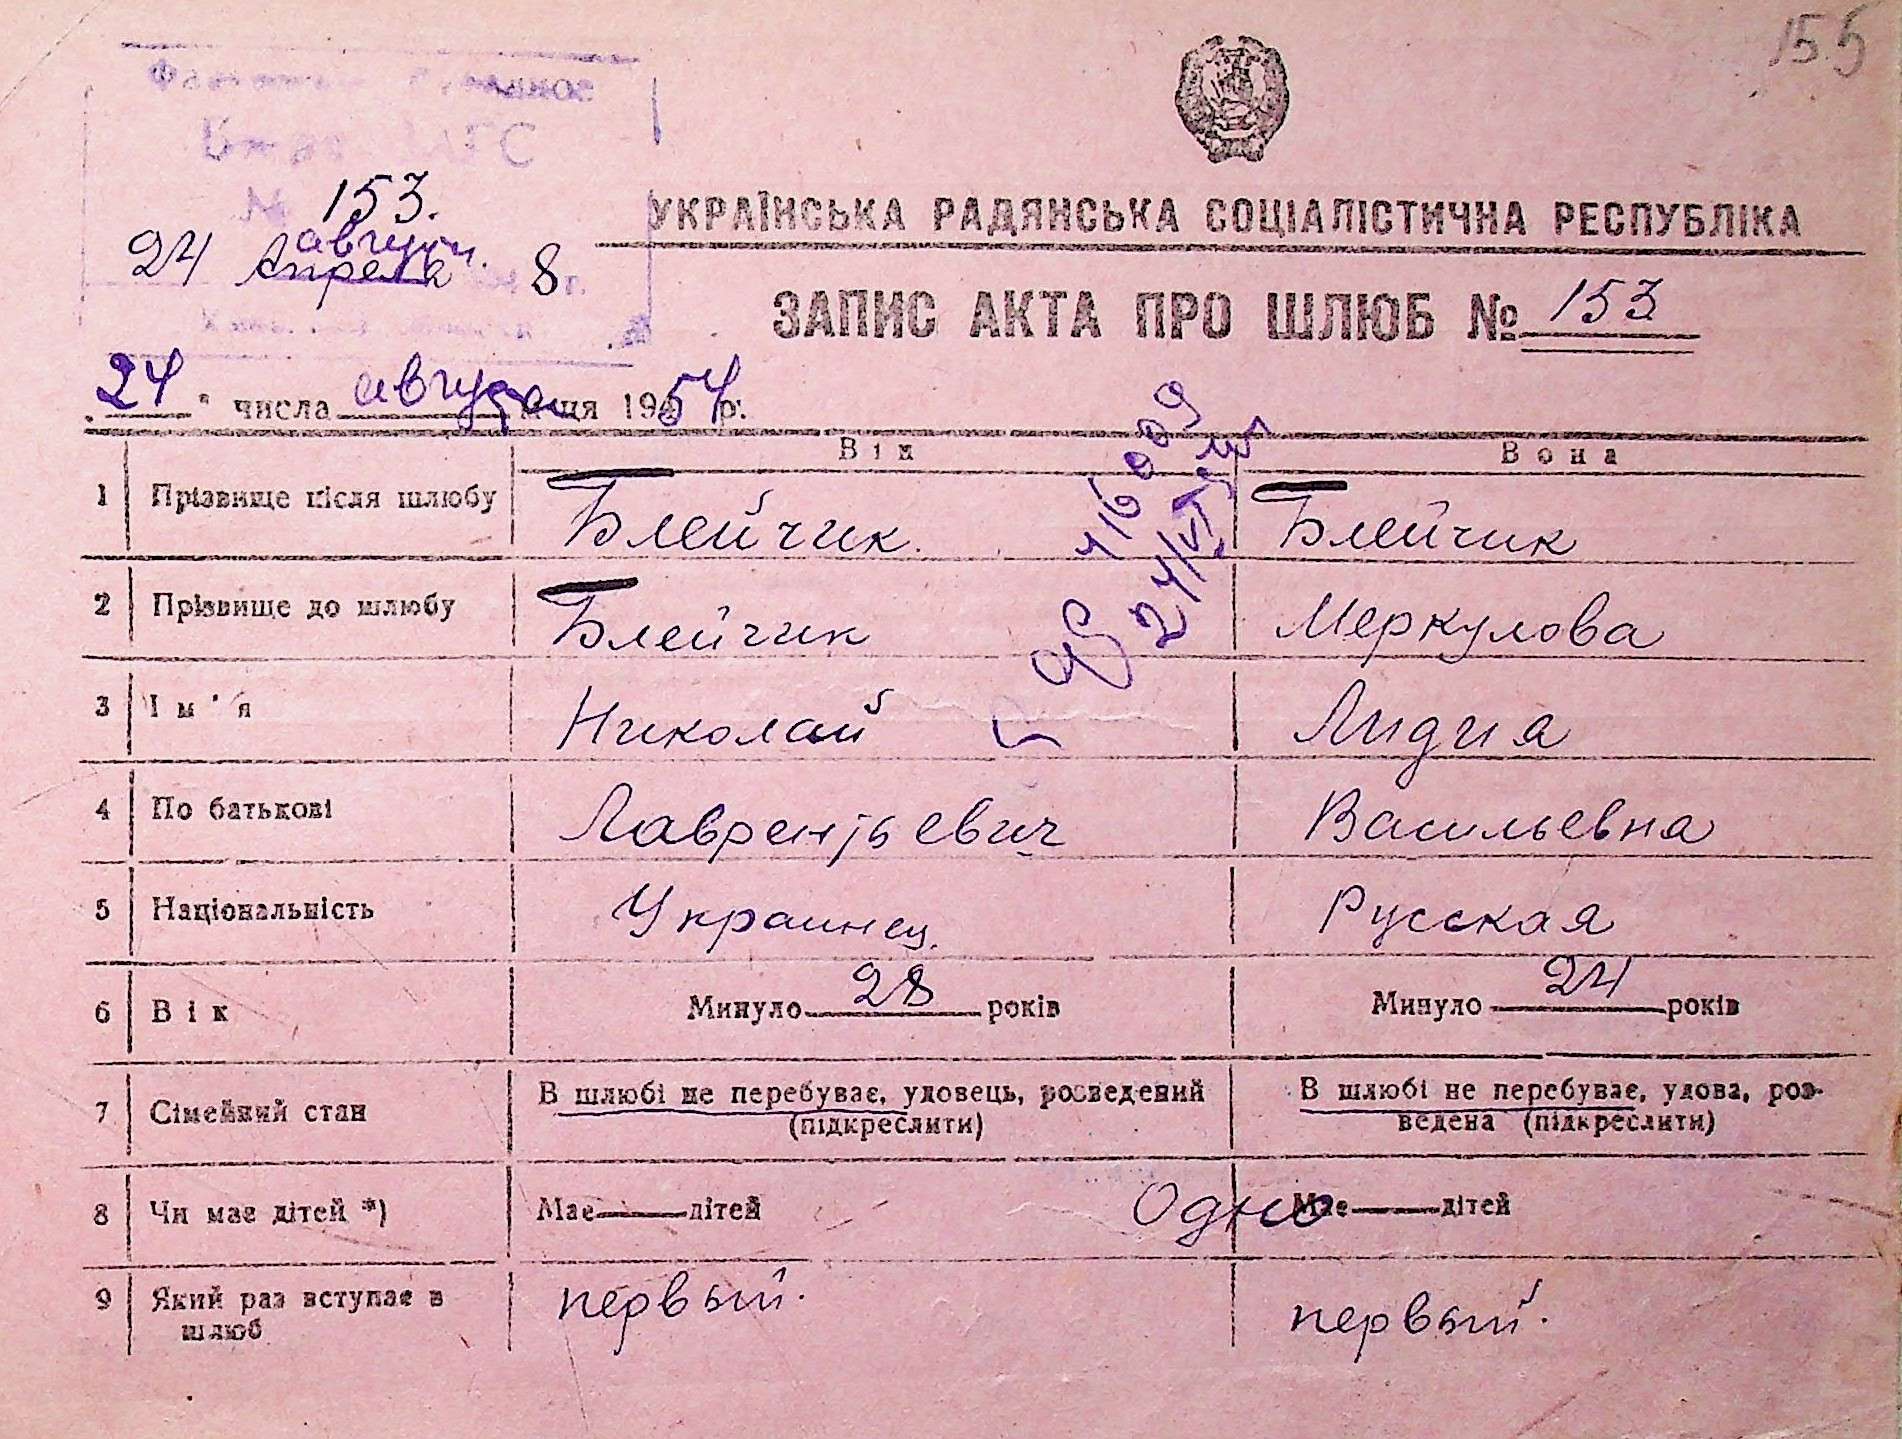 155
153.
августа
24 Апреля 8 г.
УКРАЇНСЬКА РАДЯНСЬКА СОЦІАЛІСТИЧНА РЕСПУБЛІКА
ЗАПИС АКТА ПРО ШЛЮБ № 153
"24" числа августа 1954 р.
Він Вона
1 Прізвище після шлюбу Блейчик Блейчик
2 Прізвище до шлюбу Блейчик Меркулова
3 Ім'я Николай Лидия
4 По батькові Лаврентьевич Васильевна
5 Національність Украинец. Русская
6 Вік Минуло 28 років Минуло 24 років
7 Сімейний стан В шлюбі не перебуває, удовець, розведений В шлюбі не перебуває, удова, роз-
(підкреслити) ведена (підкреслити)
8 Чи має дітей *) Має дітей Одно Має дітей
9 Який раз вступає в первый. первый.
шлюб